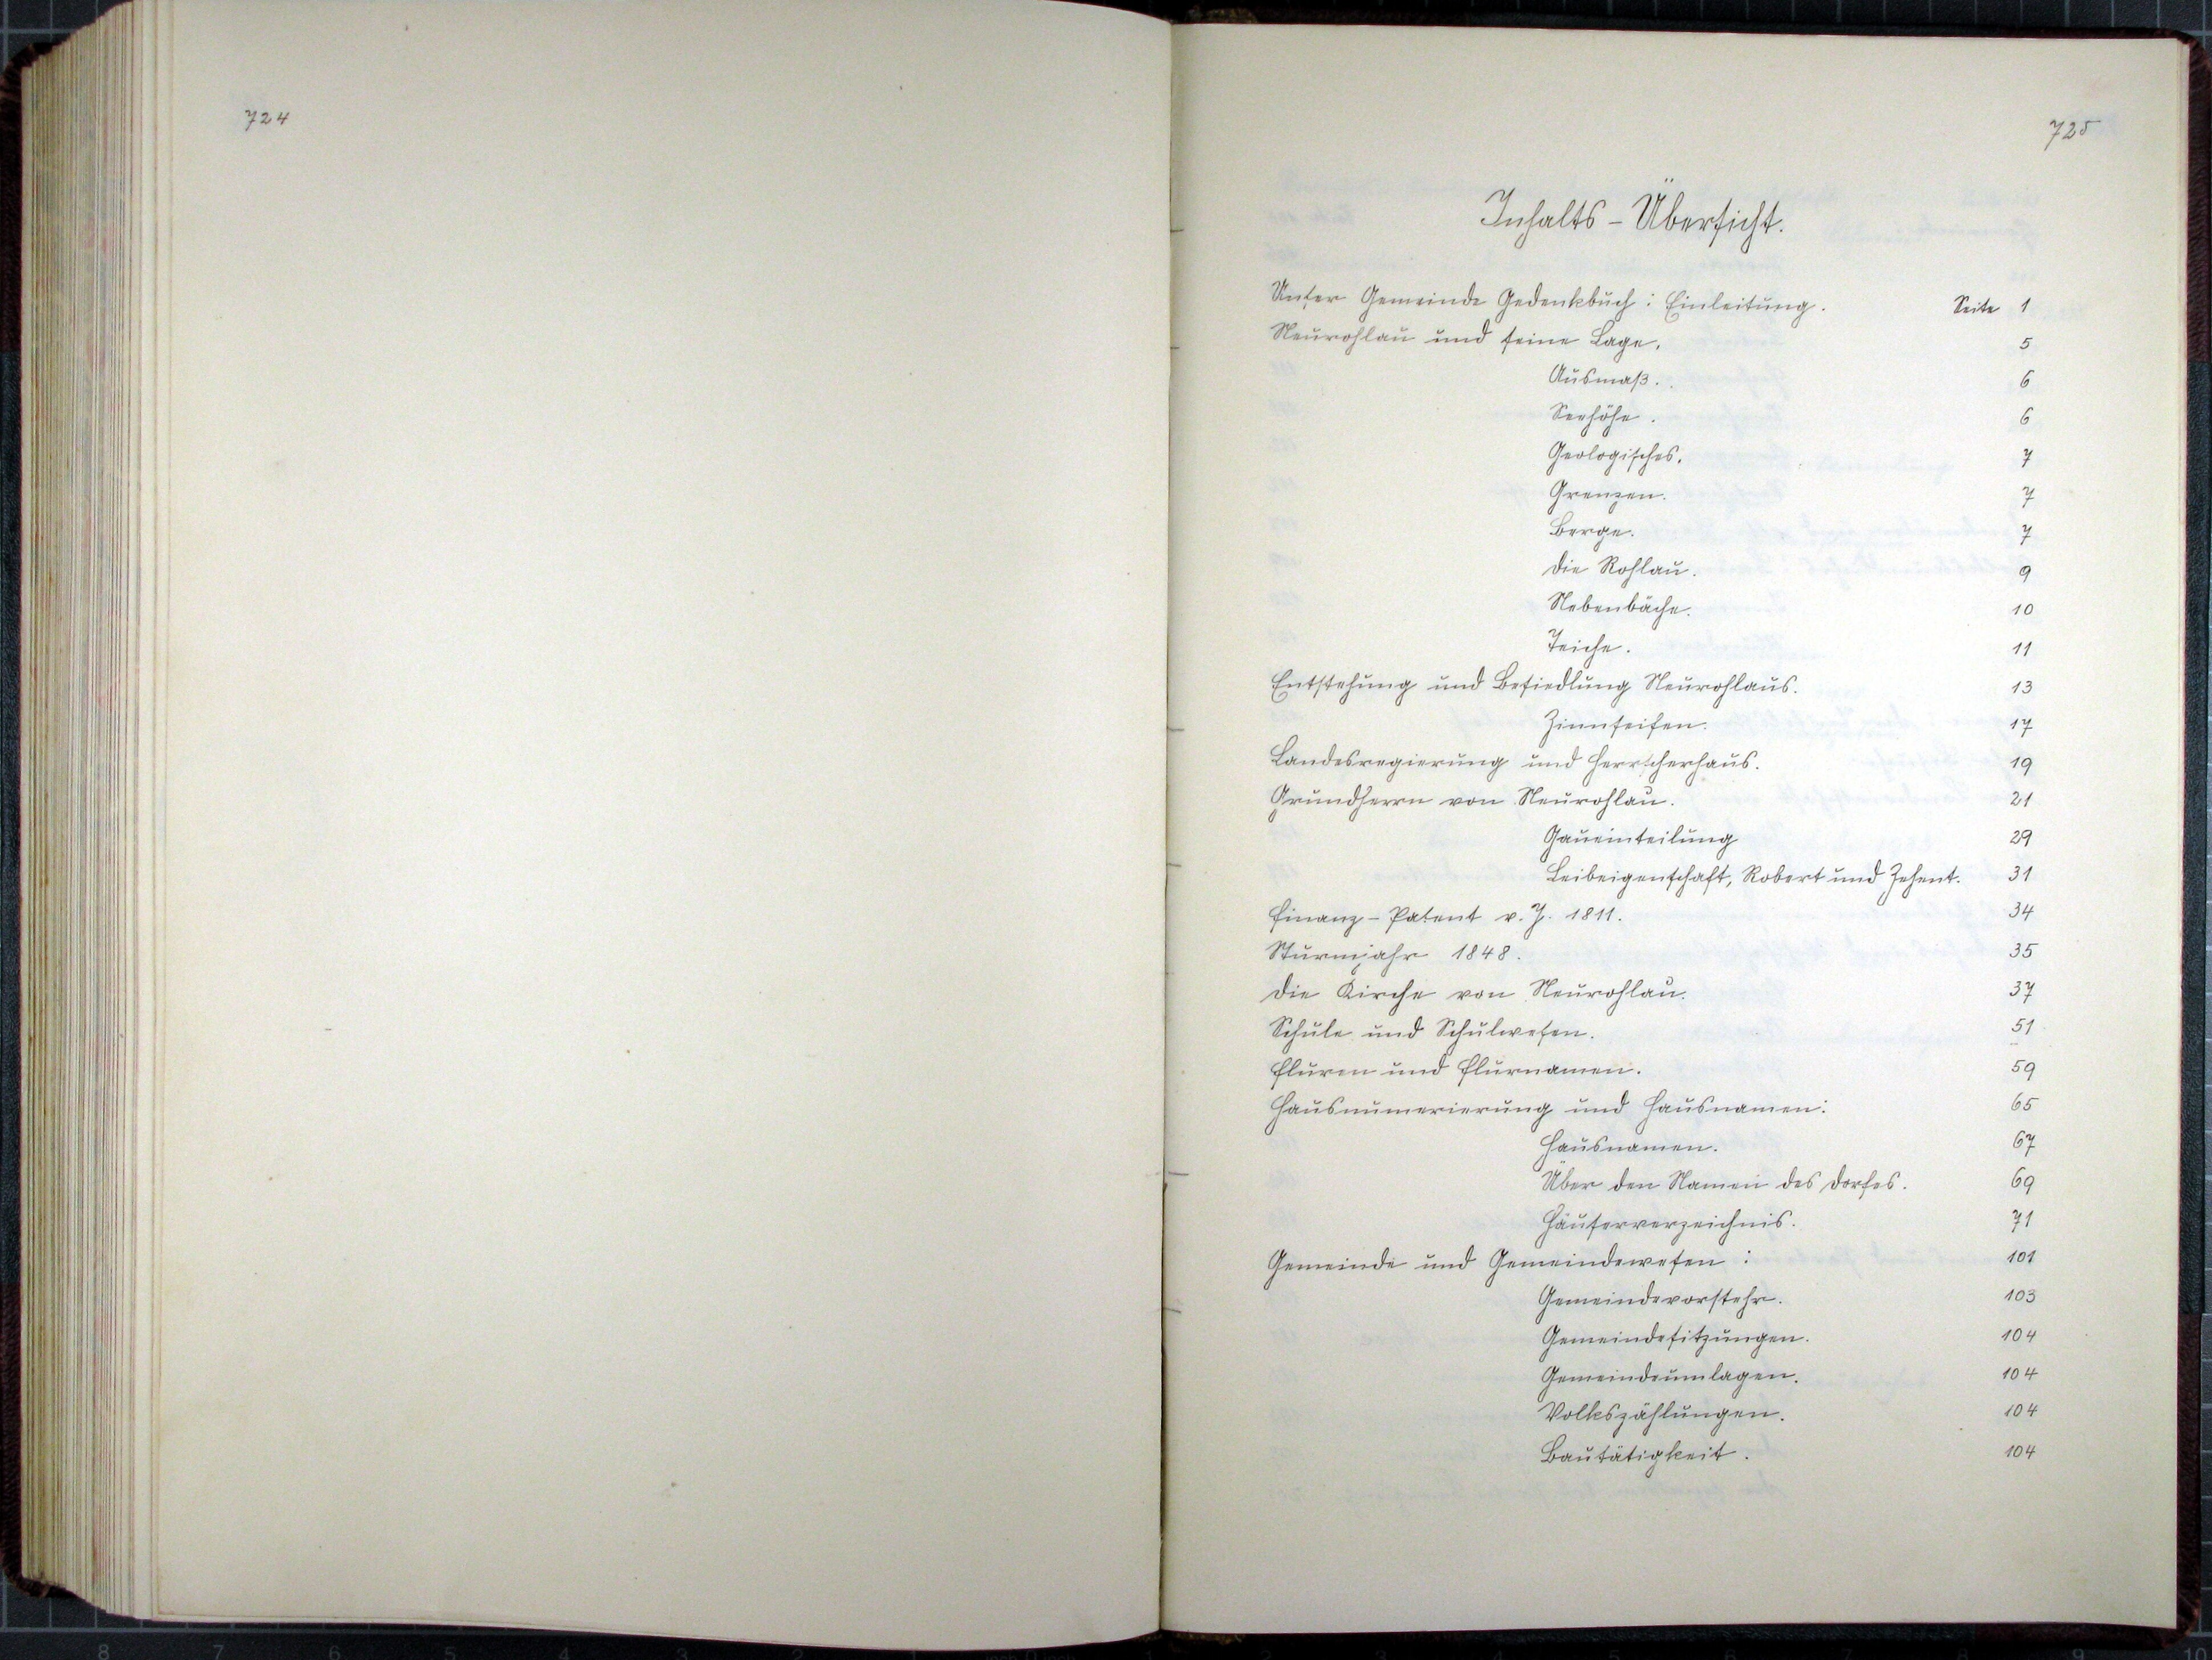 724
725
Inhalts-Übersicht.
Unser Gemeinde Gedenkbuch: Einleitung. Seite 1
Neurohlau und seine Lage. 5
Ausmaß. 6
Seehöhe. 6
Geologisches. 7
Grenzen. 7
Berge. 7
Die Rohlau. 9
Nebenbäche. 10
Teiche. 11
Entstehung und Besiedlung Neurohlaus. 13
Zinnseifen. 17
Landesregierung und Herrscherhaus. 19
Grundherrn von Neurohlau. 21
Gaueinteilung 29
Leibeigenschaft, Robert und Zehent. 31
Finanz-Patent v. J. 1811. 34
Sturmjahr 1848. 35
Die Kirche von Neurohlau. 37
Schule und Schulwesen. 51
Fluren und Flurnamen. 59
Hausnumerierung und Hausnamen: 65
Hausnamen. 67
Über den Namen des Dorfes. 69
Häuserverzeichnis. 71
Gemeinde und Gemeindewesen: 101
Gemeindevorstehr. 103
Gemeindesitzungen. 104
Gemeindeumlagen. 104
Volkszählungen. 104
Bautätigkeit. 104